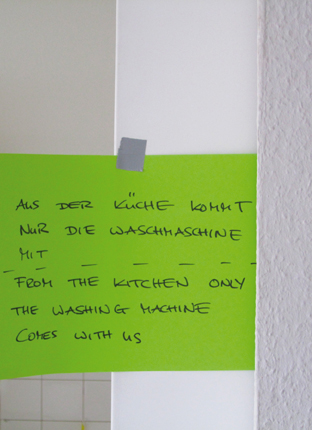 AUS DER KÜCHE KOMMT
NUR DIE WASCHMASCHINE
MIT
FROM THE KITCHEN ONLY
THE WASHING MACHINE
COMES WITH US